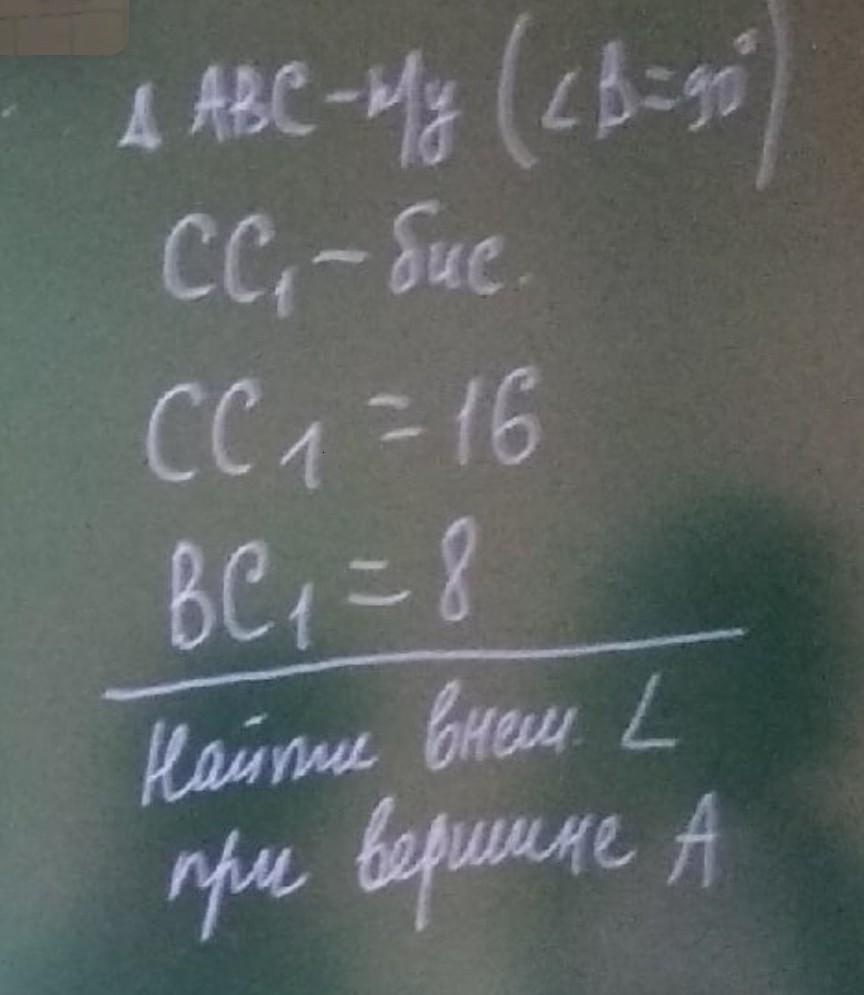 Δ ABC - п/у (∠B=90°)
CC₁ - бис.
CC₁ = 16
BC₁ = 8
Найти внеш. ∠
при вершине A